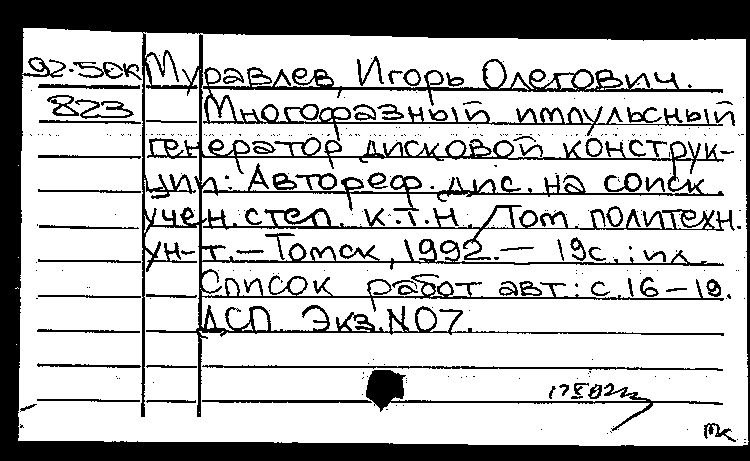 92-50К Муравлев, Игорь Олегович.
823 Многофазный импульсный
генератор дисковой конструк-
ции: Автореф. дис. на соиск.
учен. степ. к.т.н. / Том. политехн.
ун-т. – Томск, 1992. – 19с.: ил.
Список работ авт.: с. 16-19.
ДСП Экз. N07.
17 X 92
мк